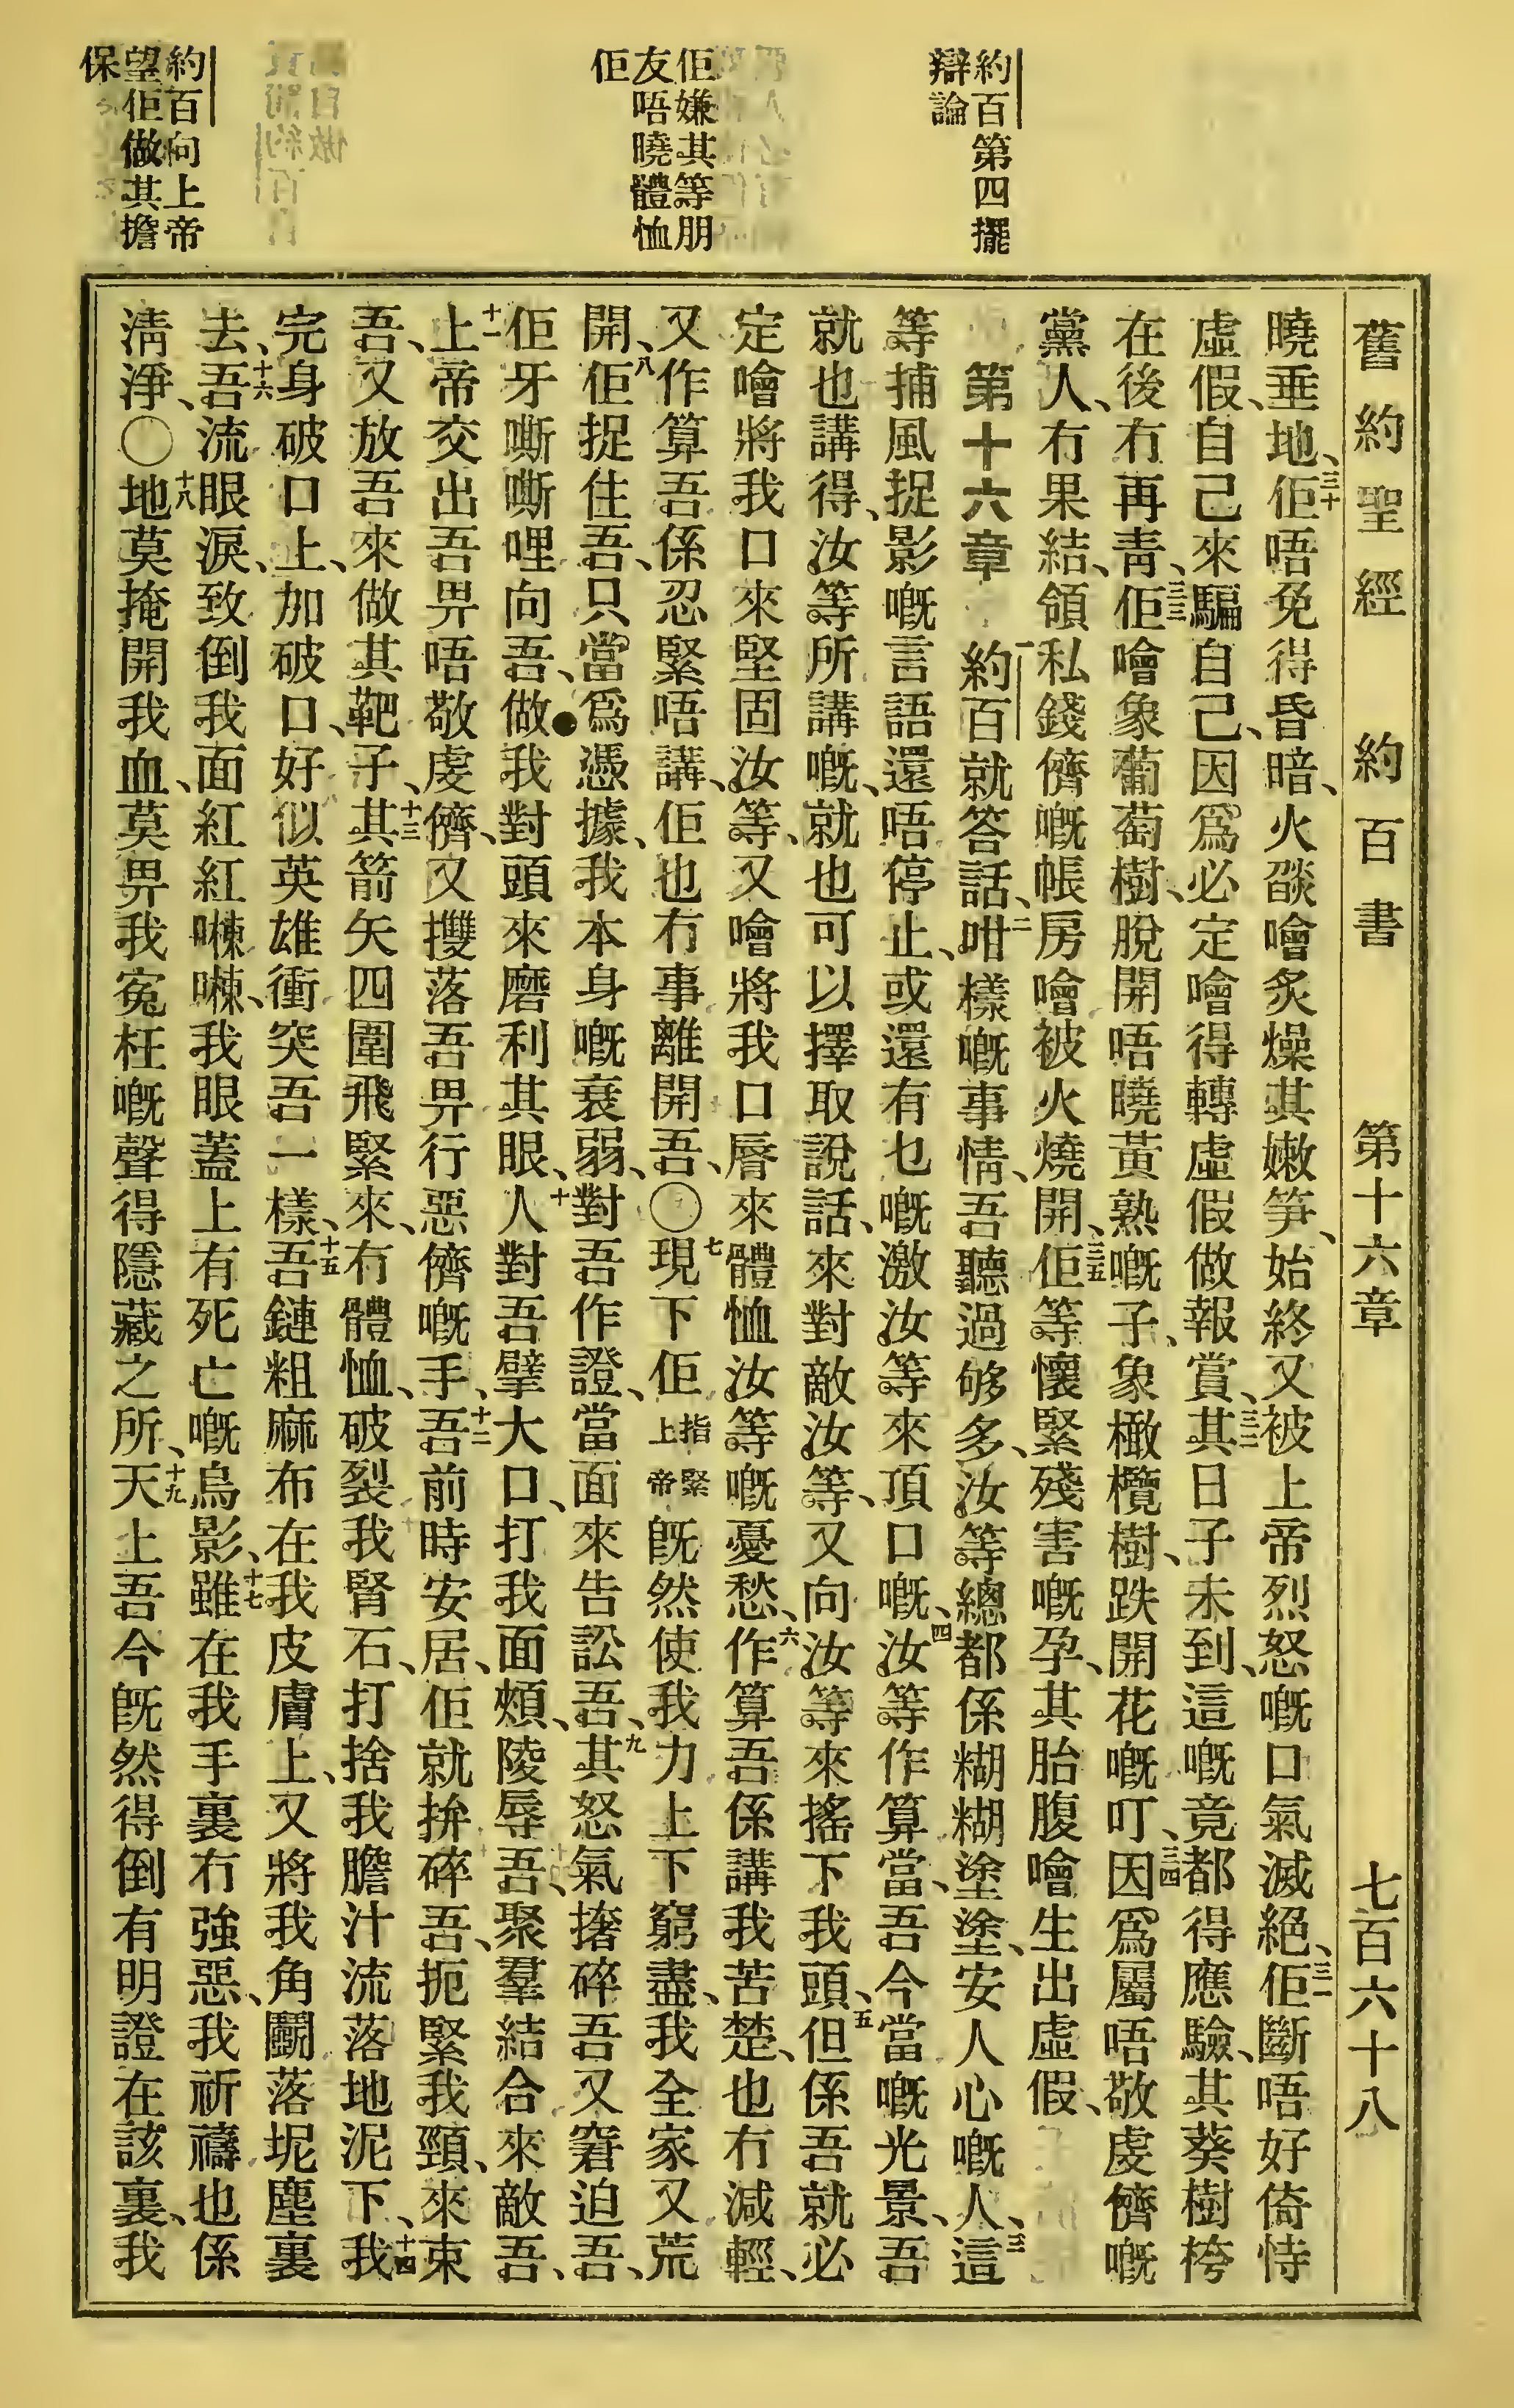 舊約聖經 約百書 第十六章 七百六十八
約百第四擺
辯論
佢嫌其等朋
友唔曉體恤
佢
約百向上帝
望佢做其擔
保
曉垂地、三十佢唔免得昏暗、火燄噲炙燥其嫩笋、始終又被上帝烈怒嘅口氣滅絕、三一佢斷唔好倚恃
虛假、自己來騙自己、因爲必定噲得轉虛假做報賞、三二其日子未到、這嘅竟都得應驗、其葵樹桍
在後冇再靑、三三佢噲象葡萄樹、脫開唔曉黃熟嘅子、象橄欖樹、跌開花嘅叮、三四因爲屬唔敬虔儕嘅
黨人、冇果結、領私錢儕嘅帳房噲被火燒開、三五佢等懷緊殘害嘅孕、其胎腹噲生出虛假、
第十六章 一約百就答話、二咁樣嘅事情、吾聽過够多、汝等總都係糊糊塗塗、安人心嘅人、三這
等捕風捉影嘅言語還唔停止、或還有乜嘅激汝等來頂口嘅、四汝等作算當、吾今當嘅光景、吾
就也講得、汝等所講嘅、就也可以擇取說話、來對敵汝等、又向汝等來搖下我頭、五但係吾就必
定噲將我口來堅固汝等、又噲將我口唇來體恤汝等嘅憂愁、六作算吾係講我苦楚、也冇減輕、
又作算吾係忍緊唔講、佢也冇事離開吾、〇七現下佢指緊上帝旣然使我力上下窮盡、我全家又荒
開、八佢捉住吾、只當爲憑據、我本身嘅衰弱、對吾作證、當面來告訟吾、九其怒氣撦碎吾又窘迫吾、
佢牙嘶嘶哩向吾、做我對頭來磨利其眼、十人對吾擘大口、打我面頰、陵辱吾、聚羣結合來敵吾、
十一上帝交出吾畀唔敬虔儕、又㩳落吾畀行惡儕嘅手、十二吾前時安居、佢就拚碎吾、扼緊我頸、來束
吾、又放吾來做其靶子、十三其箭矢四圍飛緊來、冇體恤、破裂我腎石、打捨我膽汁流落地泥下、十四我
完身破口上、加破口、好似英雄衝突吾一樣、十五吾鏈粗麻布在我皮膚上、又將我角鬭落坭塵裏
去、十六吾流眼淚、致倒我面紅紅㖦㖦、我眼蓋上有死亡嘅烏影、十七雖在我手裏冇強惡、我祈禱也係
淸淨、〇十八地莫掩開我血、莫畀我寃枉嘅聲得隱藏之所、十九天上吾今旣然得倒有明證在該裏、我